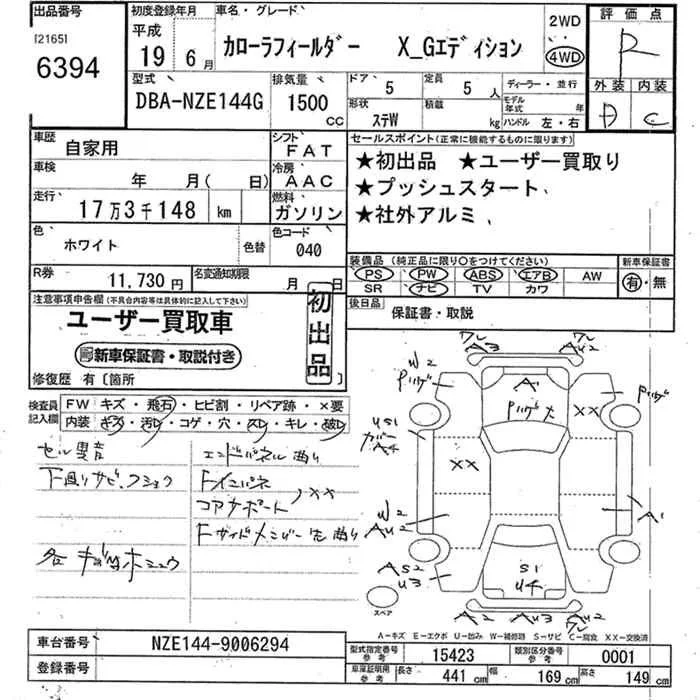 出品番号
[2165]
6394
初度登録年月
平成
19 6月
車名・グレード
カローラフィールダー X_Gエディション
2WD
4WD
評価点
R
外装 内装
D C
型式
DBA-NZE144G
排気量
1500
CC
ドア 5
定員 5 人
形状
ステW
積載
kg
ディーラー・並行
モデル年式 年
ハンドル 左・右
車歴
自家用
シフト
FAT
車検
年 月( 日)
冷房
AAC
走行
17万3千148 km
燃料
ガソリン
色
ホワイト
色替
色コード
040
R券
11,730円
名変通知期限
月 日
セールスポイント(正常に機能するものに限ります)
★初出品 ★ユーザー買取り
★プッシュスタート
★社外アルミ
装備品(純正品に限り○をつけてください)
新車保証書
PS PW ABS エアB AW
SR ナビ TV カワ
有・無
後日品
保証書・取説
注意事項申告欄(不具合内容等は具体的に記入して下さい)
ユーザー買取車
新車保証書・取説付き
初出品
修復歴 有〔箇所 〕
検査員記入欄
FW キズ・飛石・ヒビ割・リペア跡・×要
内装 キズ・汚レ・コゲ・穴・スレ・キレ・破レ
セル異音
下廻りサビ、フショク
エンドパネル曲り
Fインパネ
コアサポート、XX
Fサイドメンバー先曲り
ワレ
A3
ワレ
AU2
W2
Pハゲ
A1
Pハゲ大
XX
Pハゲ
US1
カバー
A4
XX
W2
AU2
A1
AS2
U3
S1
U4
A2
AU3
AU2
ワレ
スペア
A−キズ E−エクボ U−凹み W−補修跡 S−サビ C−腐食 XX−交換済
車台番号
NZE144-9006294
登録番号
型式指定番号
参考
15423
類別区分番号
参考
0001
車庫証明用
参考
長さ 441 cm
幅 169 cm
高さ 149 cm